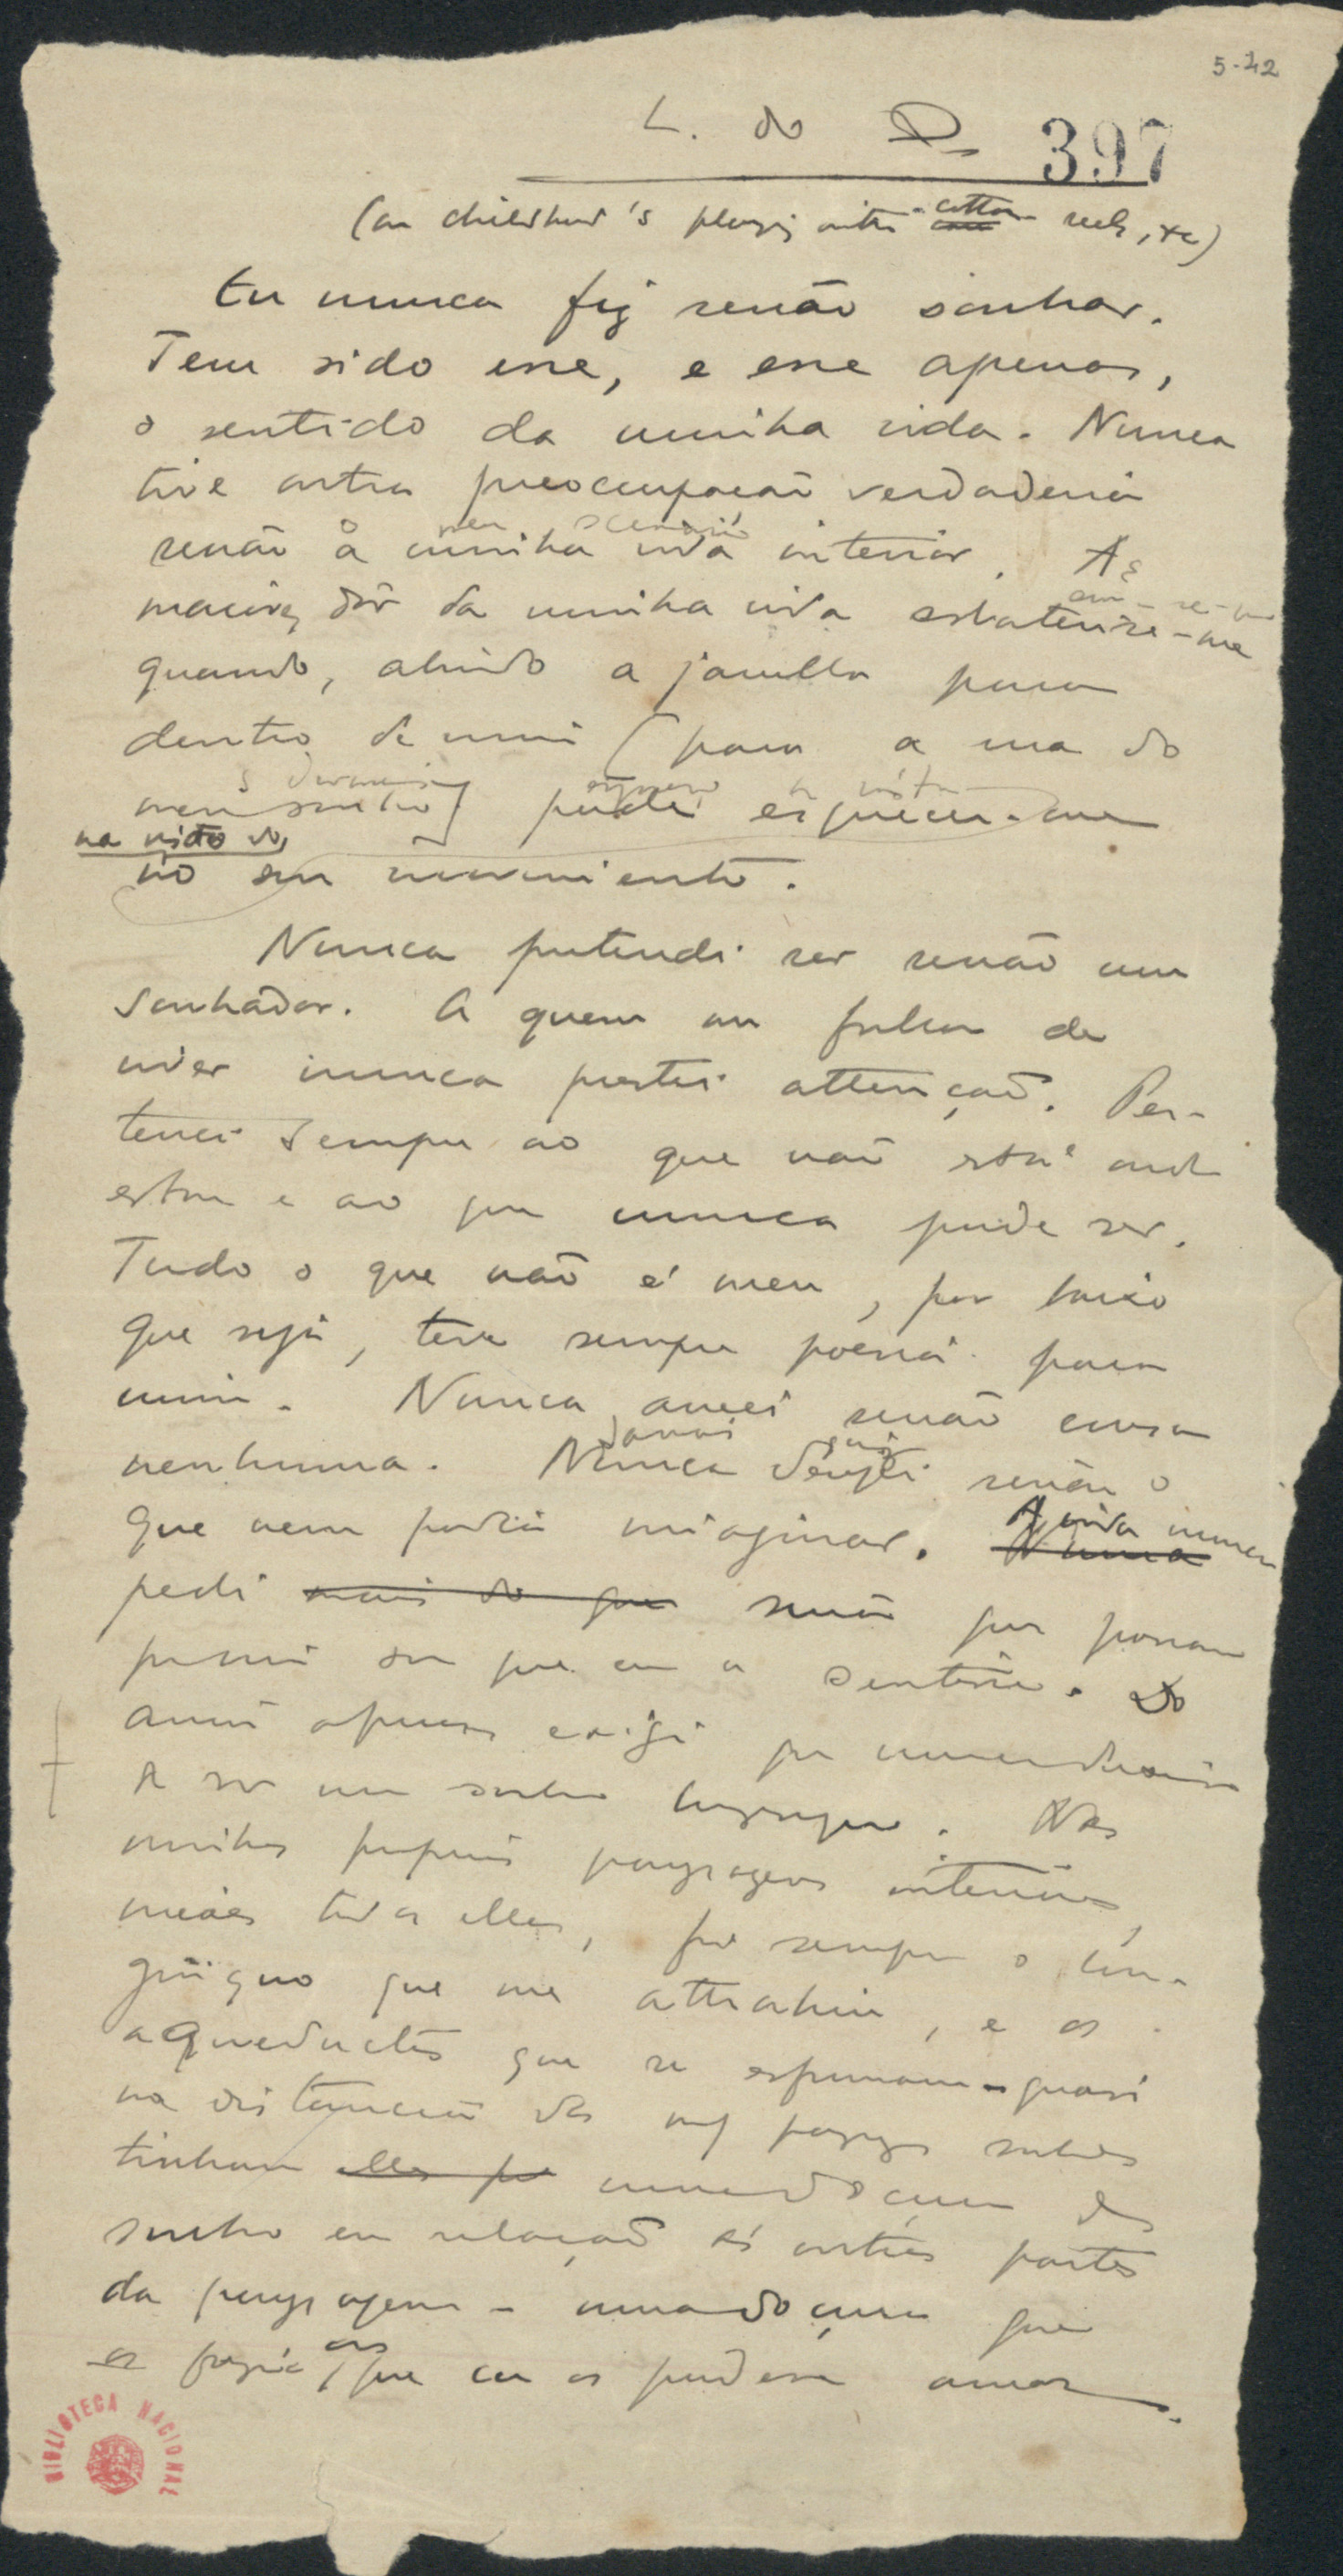 5-42
L. do D. 397
(our childhood's playing with cotton reels, etc)
Eu nunca fiz senão sonhar.
Tem sido esse, e esse apenas,
o sentido da minha vida. Nunca
tive outra preocupação verdadeira
meu scenario
senão a minha vida interior. As
em-se-me
maiores dôr da minha vida esbateu-se-me
quando, abrindo a janella para
dentro de mim (para a rua do
meu sonho) pude esquecer-me
na visão do
no seu movimento.
Nunca pretendi ser senão um
sonhador. A quem me fallou de
viver nunca prestei attenção. Per-
tenci sempre ao que não está onde
estou e ao que nunca pude ser.
Tudo o que não é meu, por baixo
que seja, teve sempre poesia para
mim. Nunca amei senão cousa
nenhuma. Nunca desejei senão o
que nem podia imaginar. Á vida nunca
Nunca
pedi mais do que senão que passasse
por mim sem que eu a sentisse. Do
amor apenas exigi que nunca deixasse
de ser um sonho longinquo. Nas
minhas proprias paysagens interiores,
irreaes todas ellas, foi sempre o lon-
ginquo que me attrahiu, e os
aqueductos que se esfumavam - quasi
na distancia das minhas paysagens sonhadas
tinham uma doçura de
sonho em relação ás outras partes
da paysagem - uma doçura que
fazia com que eu as pudesse amar.
BIBLIOTECA NACIONAL